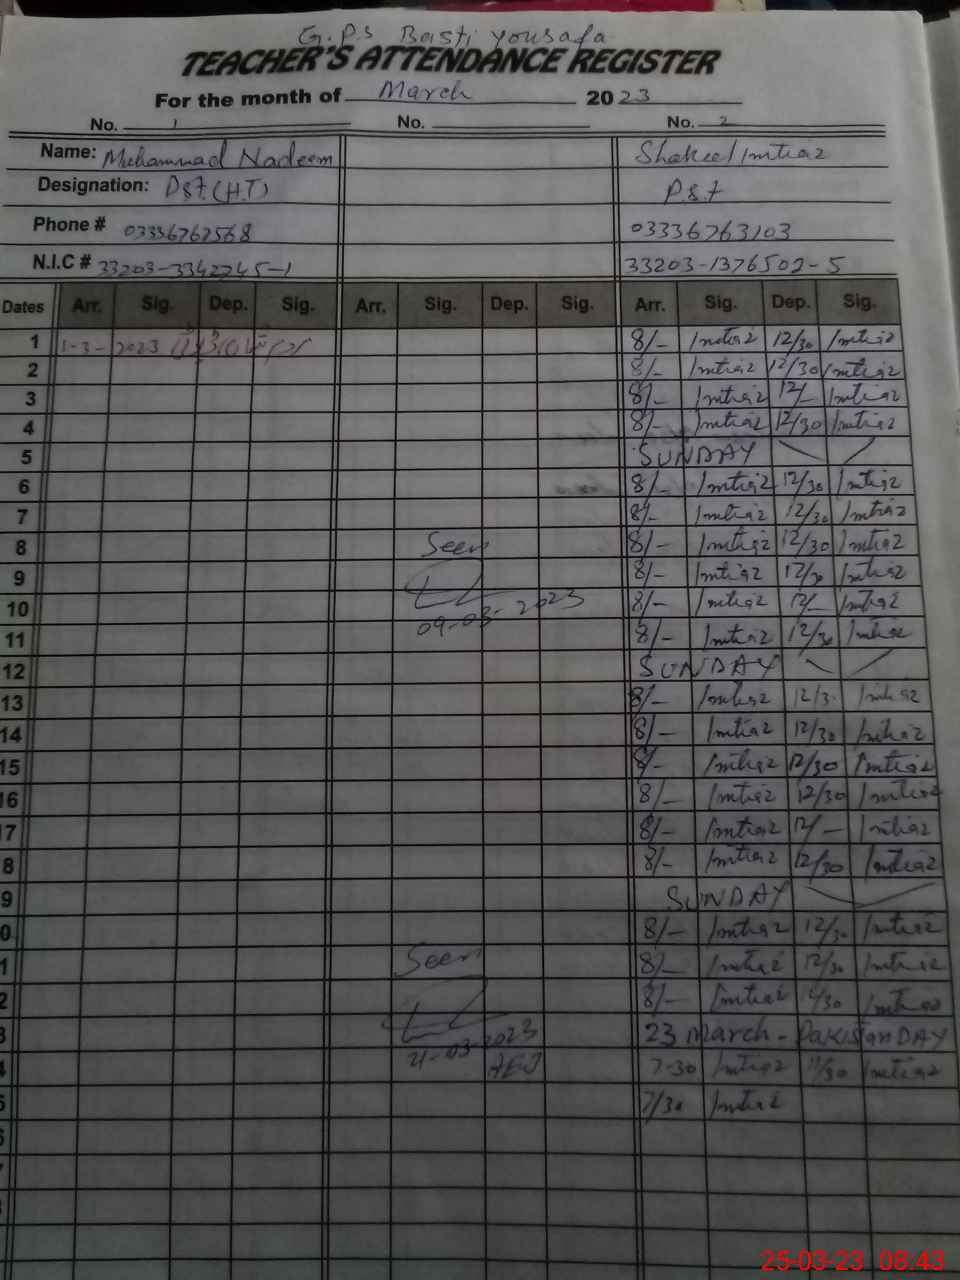 G.P.S Basti yousafa
TEACHER'S ATTENDANCE REGISTER
For the month of March 2023
No. 1 No. No. 2
Name: Muhammad Nadeem Shakeel Imtiaz
Designation: P.S.T.(H.T) P.S.T
Phone # 03336762568 03336763103
N.I.C # 33203-3342745-1 33203-1376502-5
Dates Arr. Sig. Dep. Sig. Arr. Sig. Dep. Sig. Arr. Sig. Dep. Sig.
1 1-3-2023 8/- Imtiaz 12/30 Imtiaz
2 8/- Imtiaz 12/30 Imtiaz
3 8/- Imtiaz 12/- Imtiaz
4 8/- Imtiaz 12/30 Imtiaz
5 SUNDAY
6 8/- Imtiaz 12/30 Imtiaz
7 8/- Imtiaz 12/30 Imtiaz
8 Seen 8/- Imtiaz 12/30 Imtiaz
9 8/- Imtiaz 12/30 Imtiaz
10 09-03-2023 8/- Imtiaz 12/- Imtiaz
11 8/- Imtiaz 12/30 Imtiaz
12 SUNDAY
13 8/- Imtiaz 12/3 Imtiaz
14 8/- Imtiaz 12/30 Imtiaz
15 8/- Imtiaz 12/30 Imtiaz
16 8/- Imtiaz 12/30 Imtiaz
17 8/- Imtiaz 12/- Imtiaz
8 8/- Imtiaz 12/30 Imtiaz
9 SUNDAY
0 8/- Imtiaz 12/30 Imtiaz
1 Seen 8/- Imtiaz 12/30 Imtiaz
2 8/- Imtiaz 12/30 Imtiaz
3 21-03-2023 23 March - PAKISTAN DAY
4 AEO 7-30 Imtiaz 11/30 Imtiaz
5 7/30 Imtiaz
6
7
8
25-03-23 08:43